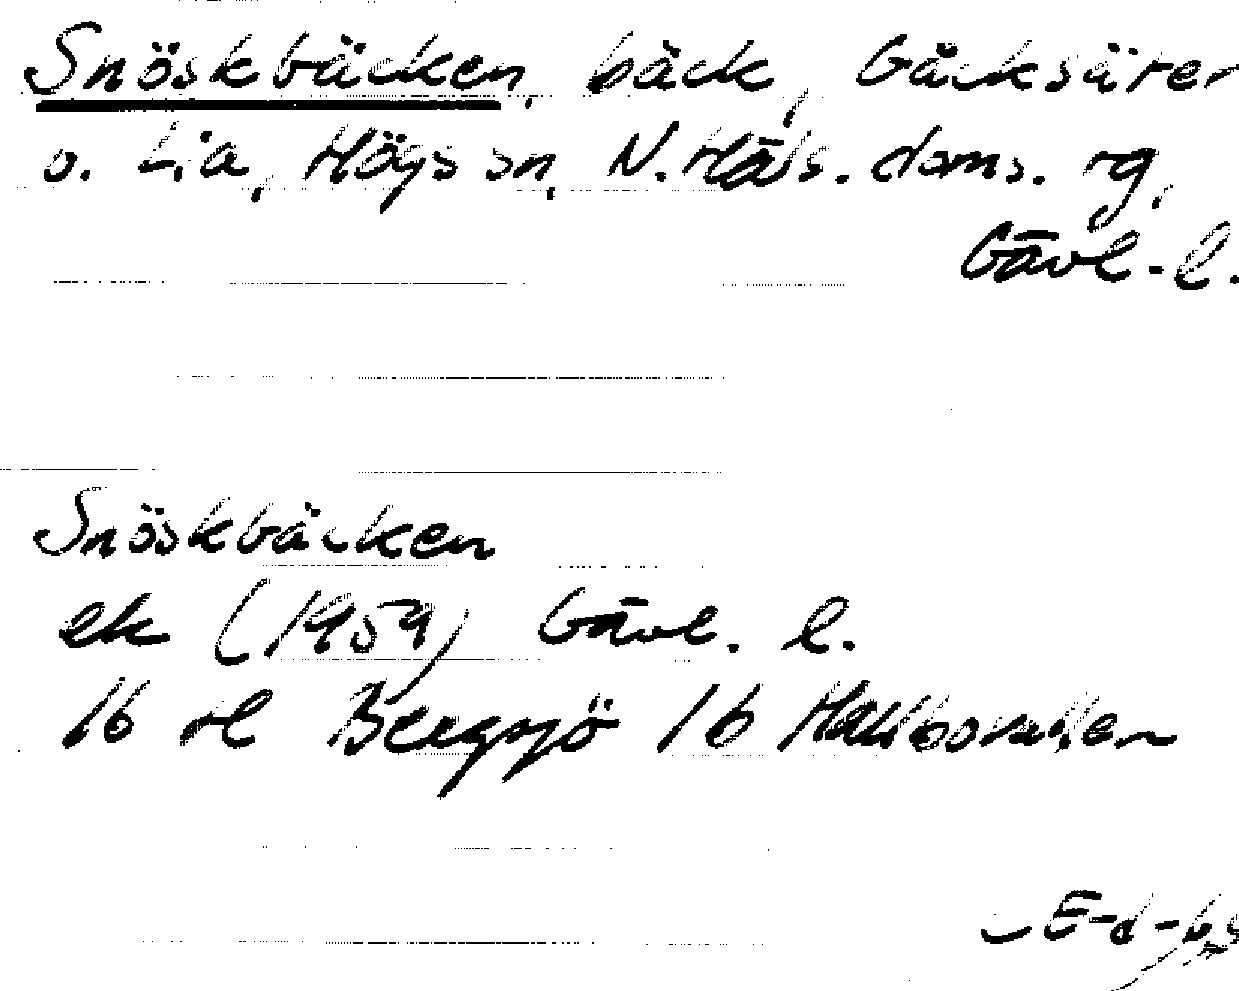 Snöskbäcken, bäck, Gåcksäter
o. Lia, Högs sn, N. Häls. doms. rg,
Gävl. l.
Snöskbäcken
ek (1959) Gävl. l.
16 Bergsjö 16